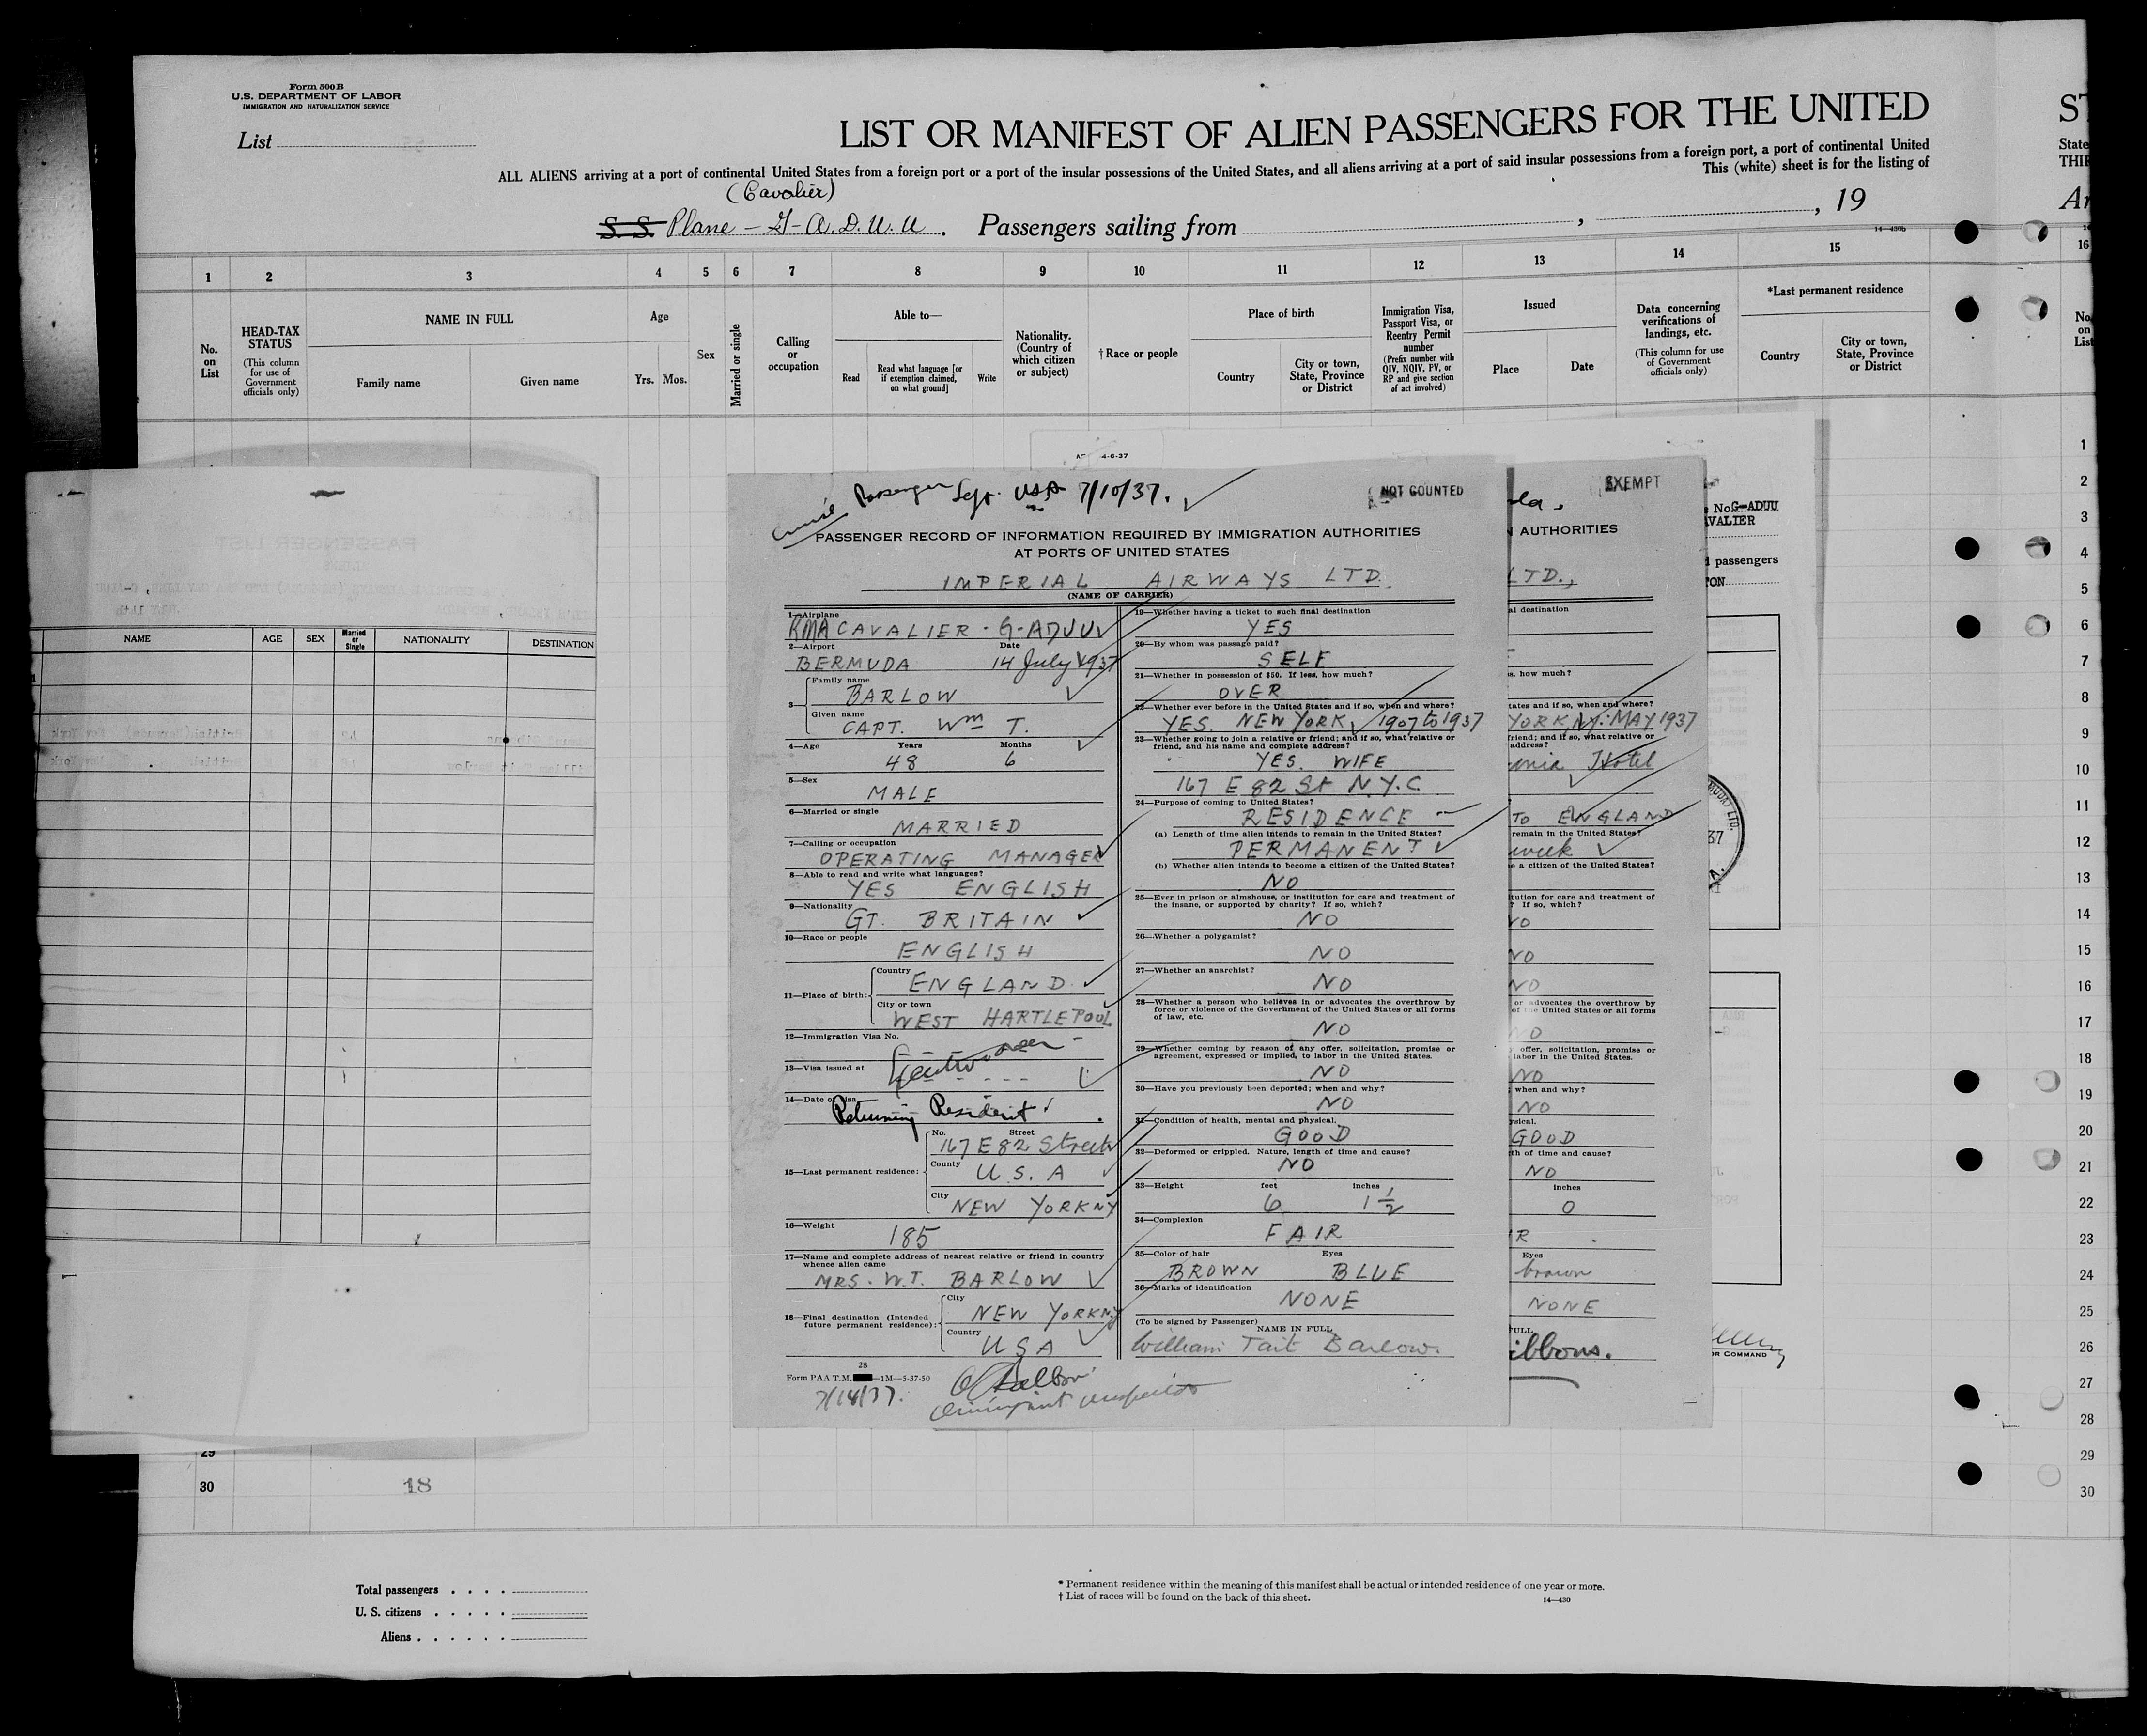 Form 500 B
U.S. DEPARTMENT OF LABOR
IMMIGRATION AND NATURALIZATION SERVICE
List
LIST OR MANIFEST OF ALIEN PASSENGERS FOR THE UNITED
ST
ALL ALIENS arriving at a port of continental United States from a foreign port or a port of the insular possessions of the United States, and all aliens arriving at a port of said insular possessions from a foreign port, a port of continental United
State
This (white) sheet is for the listing of
THIR
(Cavalier)
S. S. Plane - G-A.D.U.U. Passengers sailing from , , 19
Ar
14—430b
1 2 3 4 5 6 7 8 9 10 11 12 13 14 15 16
No. on List
HEAD-TAX STATUS
(This column for use of Government officials only)
NAME IN FULL
Family name Given name
Age
Yrs. Mos.
Sex
Married or single
Calling or occupation
Able to—
Read
Read what language [or if exemption claimed, on what ground]
Write
Nationality. (Country of which citizen or subject)
† Race or people
Place of birth
Country
City or town, State, Province or District
Immigration Visa, Passport Visa, or Reentry Permit number
(Prefix number with QIV, NQIV, PV, or RP and give section of act involved)
Issued
Place Date
Data concerning verifications of landings, etc.
(This column for use of Government officials only)
*Last permanent residence
Country
City or town, State, Province or District
No. on List
NAME AGE SEX Married or Single NATIONALITY DESTINATION
4-6-37
Passenger Sept. USA 7/10/37.
NOT COUNTED
PASSENGER RECORD OF INFORMATION REQUIRED BY IMMIGRATION AUTHORITIES
AT PORTS OF UNITED STATES
IMPERIAL AIRWAYS LTD.
(NAME OF CARRIER)
1—Airplane
RMA CAVALIER - G-ADUU
2—Airport Date
BERMUDA 14 July 1937
3— Family name
BARLOW
Given name
CAPT. Wm T.
4—Age Years Months
48 6
5—Sex
MALE
6—Married or single
MARRIED
7—Calling or occupation
OPERATING MANAGER
8—Able to read and write what languages?
YES ENGLISH
9—Nationality
GT. BRITAIN
10—Race or people
ENGLISH
11—Place of birth: Country
ENGLAND
City or town
WEST HARTLEPOOL
12—Immigration Visa No.
13—Visa issued at
14—Date of visa
Returning Resident
15—Last permanent residence: No. Street
167 E 82 Street
County
U.S.A
City
NEW YORK NY
16—Weight
185
17—Name and complete address of nearest relative or friend in country whence alien came
MRS. W.T. BARLOW
18—Final destination (Intended future permanent residence): City
NEW YORK NY
Country
USA
28
Form PAA T.M. —1M—5-37-50
7/14/37.
19—Whether having a ticket to such final destination
YES
20—By whom was passage paid?
SELF
21—Whether in possession of $50. If less, how much?
OVER
22—Whether ever before in the United States and if so, when and where?
YES. NEW YORK 1907 to 1937
23—Whether going to join a relative or friend; and if so, what relative or friend, and his name and complete address?
YES. WIFE
167 E 82 St N.Y.C.
24—Purpose of coming to United States?
RESIDENCE
(a) Length of time alien intends to remain in the United States?
PERMANENT
(b) Whether alien intends to become a citizen of the United States?
NO
25—Ever in prison or almshouse, or institution for care and treatment of the insane, or supported by charity? If so, which?
NO
26—Whether a polygamist?
NO
27—Whether an anarchist?
NO
28—Whether a person who believes in or advocates the overthrow by force or violence of the Government of the United States or all forms of law, etc.
NO
29—Whether coming by reason of any offer, solicitation, promise or agreement, expressed or implied, to labor in the United States.
NO
30—Have you previously been deported; when and why?
NO
31—Condition of health, mental and physical.
GOOD
32—Deformed or crippled. Nature, length of time and cause?
NO
33—Height feet inches
6 1 1/2
34—Complexion
FAIR
35—Color of hair Eyes
BROWN BLUE
36—Marks of identification
NONE
(To be signed by Passenger)
NAME IN FULL
William Tait Barlow.
EXEMPT
AUTHORITIES
LTD.,
al destination
s, how much?
tates and if so, when and where?
YORK NY. MAY 1937
friend; and if so, what relative or
address?
Hotel
TO ENGLAND
remain in the United States?
week
e a citizen of the United States?
tution for care and treatment of
? If so, which?
NO
NO
NO
or advocates the overthrow by
of the United States or all forms
NO
offer, solicitation, promise or
labor in the United States.
NO
when and why?
NO
ysical.
GOOD
th of time and cause?
NO
inches
0
R
Eyes
brown
NONE
FULL
ibbons.
No. G-ADUU
AVALIER
passengers
TON
LTD.
37
OR COMMAND
1
2
3
4
5
6
7
8
9
10
11
12
13
14
15
16
17
18
19
20
21
22
23
24
25
26
27
28
29 29
30 18 30
Total passengers
U. S. citizens
Aliens
* Permanent residence within the meaning of this manifest shall be actual or intended residence of one year or more.
† List of races will be found on the back of this sheet.
14—430